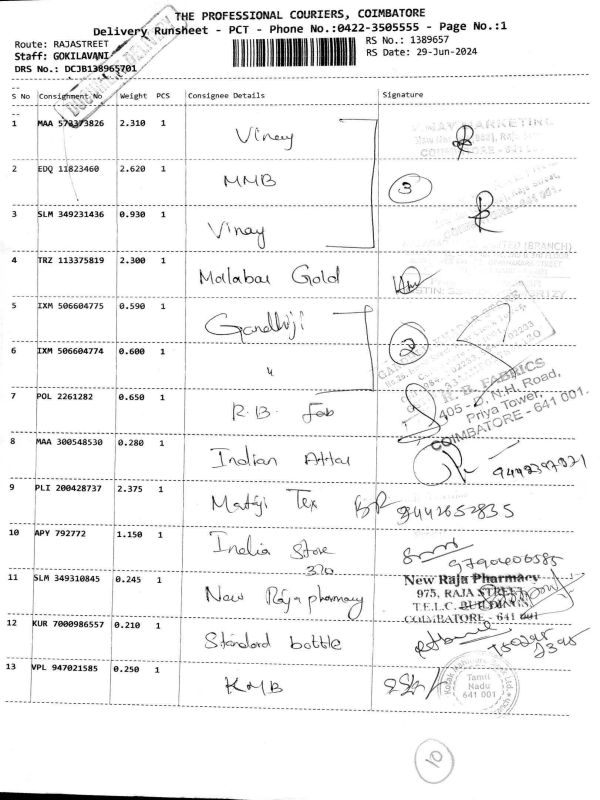 THE PROFESSIONAL COURIERS, COIMBATORE
Delivery Runsheet - PCT - Phone No.:0422-3505555 - Page No.:1
Route: RAJASTREET
RS No.: 1389657
Staff: GOKILAVANI
RS Date: 29-Jun-2024
DRS No.: DCJB138965701
S No Consignment No Weight PCS Consignee Details Signature
1 MAA 573373826 2.310 1 Vinay
2 EDQ 11823460 2.620 1 MMB 3
3 SLM 349231436 0.930 1 Vinay
4 TRZ 113375819 2.300 1 Malabar Gold
5 IXM 506604775 0.590 1 Gandhiji
2
6 IXM 506604774 0.600 1 "
7 POL 2261282 0.650 1 R.B. Fab
R. B. FABRICS
405 - D. N.H. Road,
Priya Tower,
COIMBATORE - 641 001.
8 MAA 300548530 0.280 1 Indian Attar
9 PLI 200428737 2.375 1 Tex 9442652835
10 APY 792772 1.150 1 India Store
320
11 SLM 349310845 0.245 1 New Raja pharmacy
New Raja Pharmacy
975, RAJA STREET
T.E.L.C. BUILDINGS
COIMBATORE - 641 001
12 KUR 7000986557 0.210 1 Standard bottle
13 VPL 947021585 0.250 1 KMB
Tamil
Nadu
641 001
10